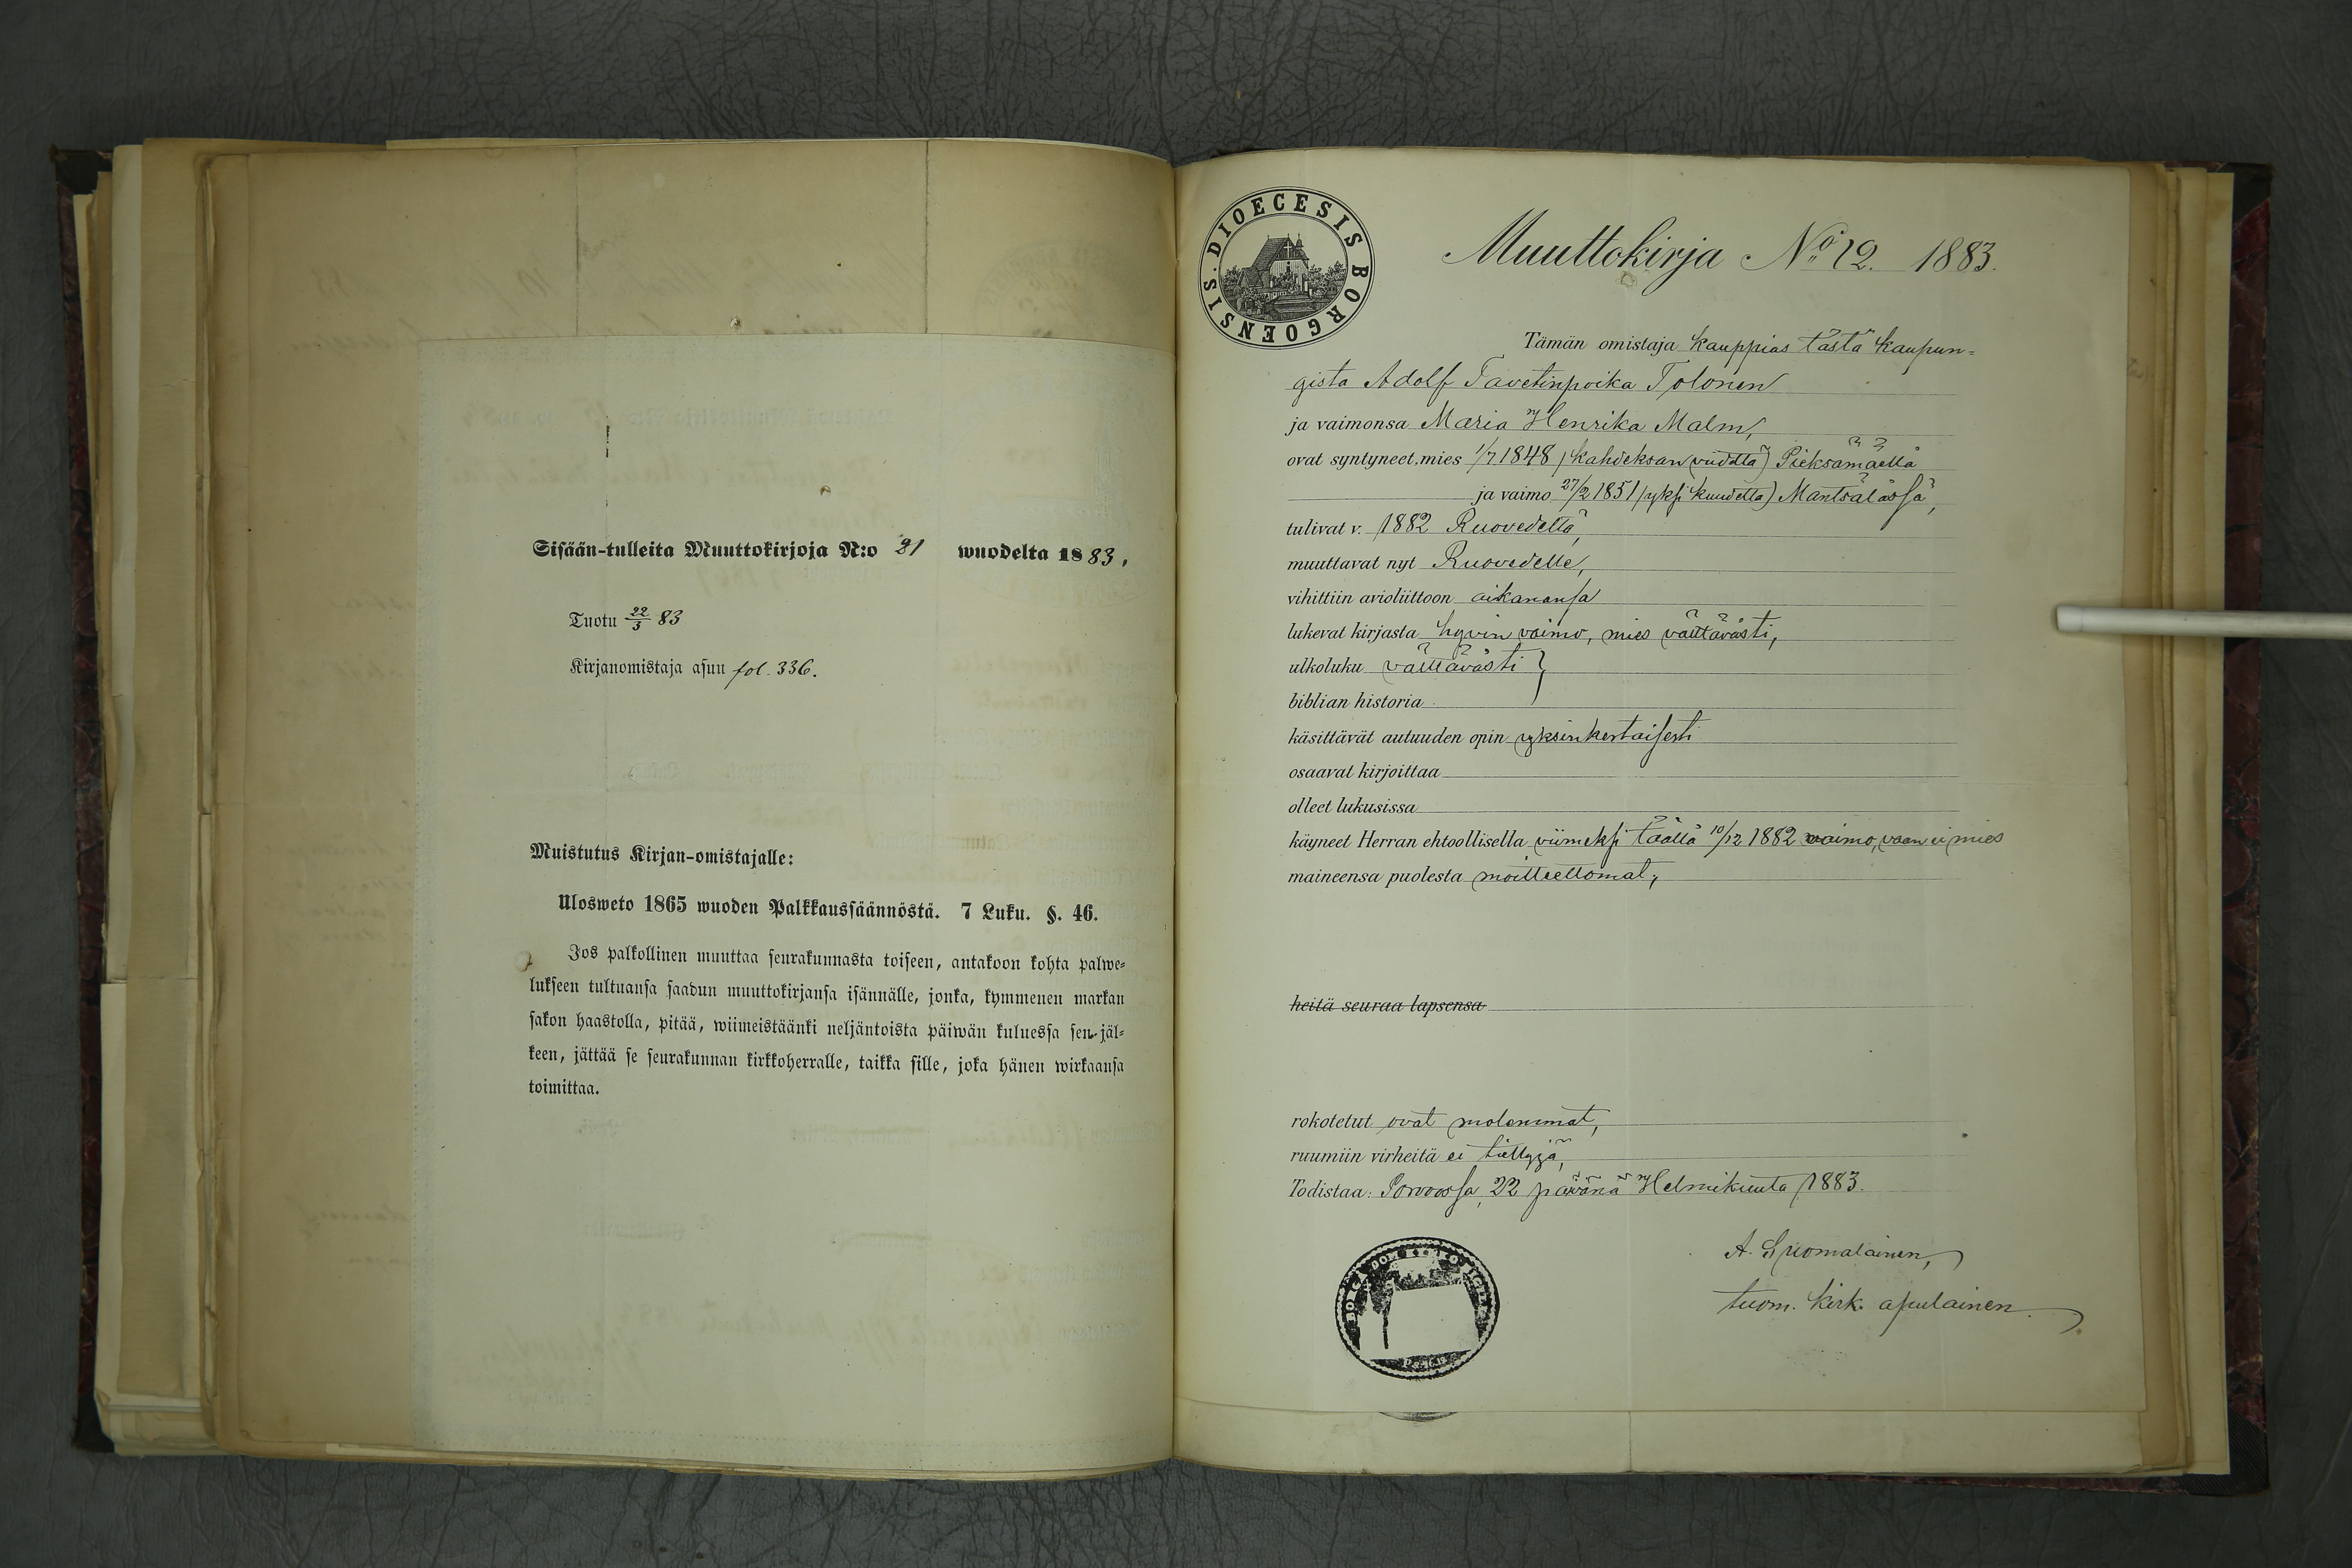 Sisään-tulleita Muuttokirjoja N:o 21 wuodelta 1883,
Tuotu 22/3 83
Kirjanomistaja asuu fol. 336.
Muistutus Kirjan-omistajalle:
Ulosweto 1865 wuoden Palkkaussäännöstä. 7 Luku. §. 46.
Jos palkollinen muuttaa seurakunnasta toiseen, antakoon kohta palwe=
lukseen tultuansa saadun muuttokirjansa isännälle, jonka, kymmenen markan
sakon haastolla, pitää, wiimeistäänki neljäntoista päiwän kuluessa sen jäl=
keen, jättää se seurakunnan kirkkoherralle, taikka sille, joka hänen wirkaansa
toimittaa.
DIOECESIS BORGOENSIS.
Muuttokirja No 12. 1883.
Tämän omistaja kauppias tästä kaupun=
gista Adolf Tavetinpoika Tolonen
ja vaimonsa Maria Henrika Malm,
ovat syntyneet, mies 1/7 1848 (kahdeksan viidettä) Pieksämäellä
ja vaimo 27/2 1851 (yksi kuudetta) Mäntsälässä,
tulivat v. 1882 Ruovedeltä,
muuttavat nyt Ruovedelle,
vihittiin avioliittoon aikanansa
lukevat kirjasta hyvin vaimo, mies välttävästi,
ulkoluku välttävästi }
biblian historia
käsittävät autuuden opin yksinkertaisesti
osaavat kirjoittaa
olleet lukusissa
käyneet Herran ehtoollisella viimeksi täällä 10/12 1882 vaimo, vaan ei mies
maineensa puolesta moitteettomat,
heitä seuraa lapsensa
rokotetut ovat molemmat,
ruumiin virheitä ei tiettyjä,
Todistaa: Porvoossa, 22 päivänä Helmikuuta 1883.
A. Suomalainen,
tuom. kirk. apulainen.